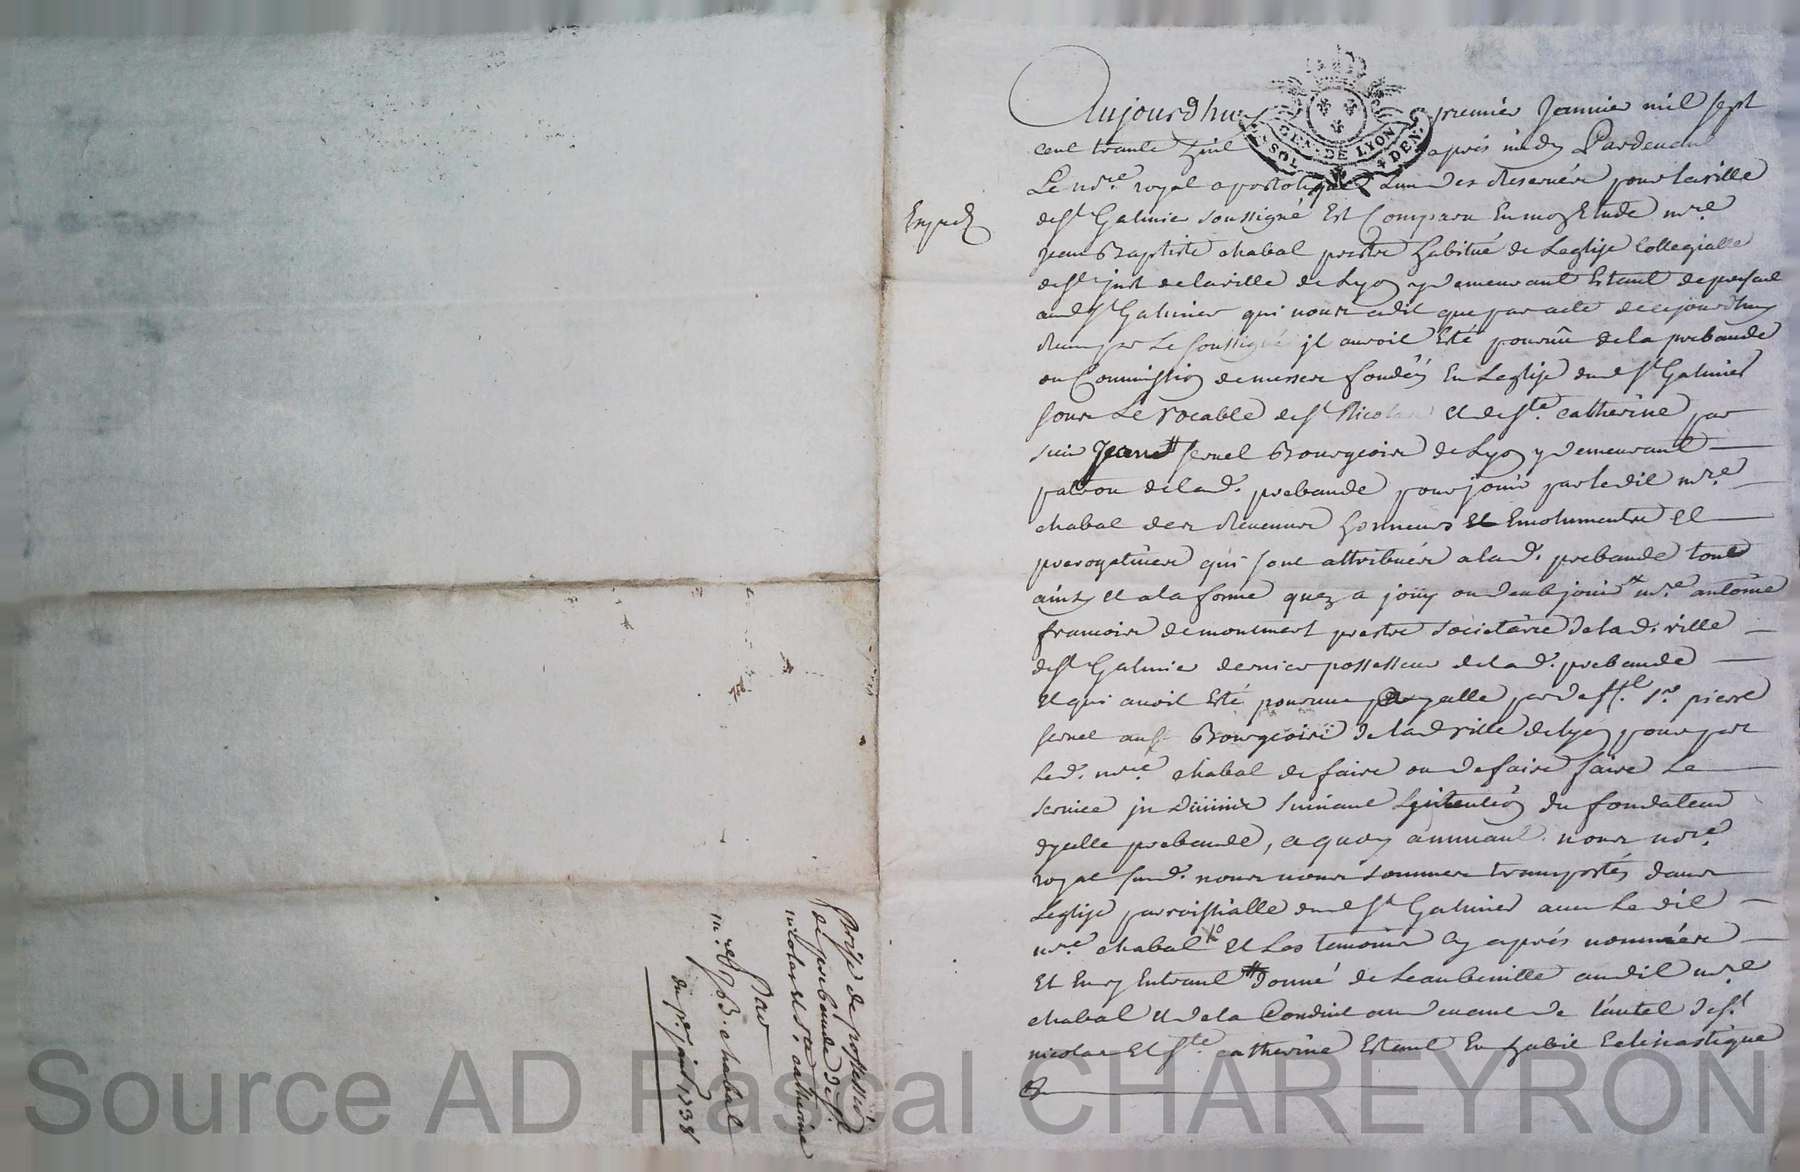 Aujourdhuy premier Janvier mil sept
cent trante huit apres midy Pardevant
Le nore royal apostolique Lun des Reservés pour la ville
de st Galmier soussigné Est Comparu En mon Etude mre
Expedié
Jean Baptiste chabal prestre habitué de Leglise Collegialle
de st just de la ville de Lyon y demeurant Estant de present
aud st Galmier qui nous a dit que par acte de cejourdhuy
Receu par Le Soussigné jl auroit Esté pourvû de la prebande
ou Commission de messes fondée En Leglise dud st Galmier
sous Le vocable de st Nicolas et de ste catherine par
sieur Jean fernel Bourgeois de Lyon y demeurant
patron de lad. prebande pour jouir par ledit mre
chabal des Revenus honneurs et Emolumentz et
prerogatives qui sont attribués a lad. prebande tout
ainsy et a la forme quen a joüy ou deub jouir mre antoine
francois de montmert prestre societaire de lad. ville
de st Galmier dernier possesseur de lad. prebande
et qui avoit Esté pourveu dycelle par deft sr pierre
fernel aussy Bourgeois de lad ville de lyon pour par
Led. mre chabal de faire ou de faire faire Le
service jn Divinis suivant Lintention du fondateur
dycelle prebande, a quoy annuant nous nore
royal susd. nous nous sommes transportés dans
Leglise parroissialle dud st Galmier avec Ledit
mre chabal Et Les temoins cy aprés nommés
Et En y Entrant donné de Leau benitte audit mre
chabal et de la Conduit au devant de l'autel de st
nicolas et ste catherine Estant En habit Eclesiastique
Prise de possession
de prebande de st
nicolas et ste catherine
Par
mre J. B. chabal
du pr janv. 1738
SOL
GEN. DE LYON
4 DEN.
Source AD Pascal CHAREYRON